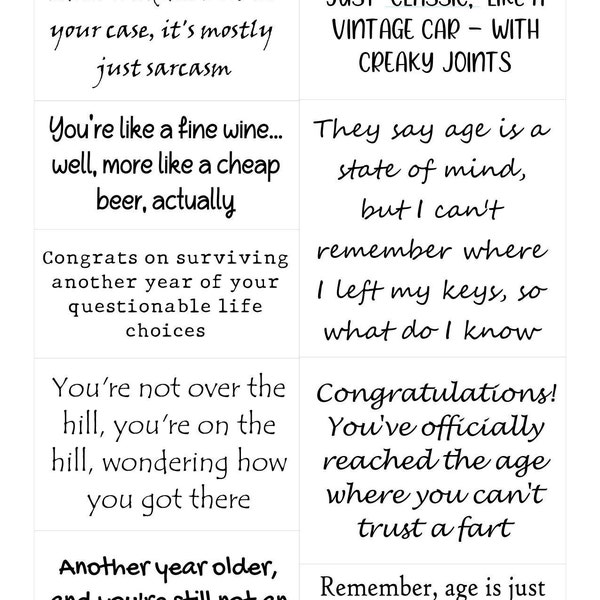 your case, it's mostly
just sarcasm
You're like a fine wine...
well, more like a cheap
beer, actually
Congrats on surviving
another year of your
questionable life
choices
You're not over the
hill, you're on the
hill, wondering how
you got there
Another year older,
and you're still not an
JUST "CLASSIC," LIKE A
VINTAGE CAR – WITH
CREAKY JOINTS
They say age is a
state of mind,
but I can't
remember where
I left my keys, so
what do I know
Congratulations!
You've officially
reached the age
where you can't
trust a fart
Remember, age is just